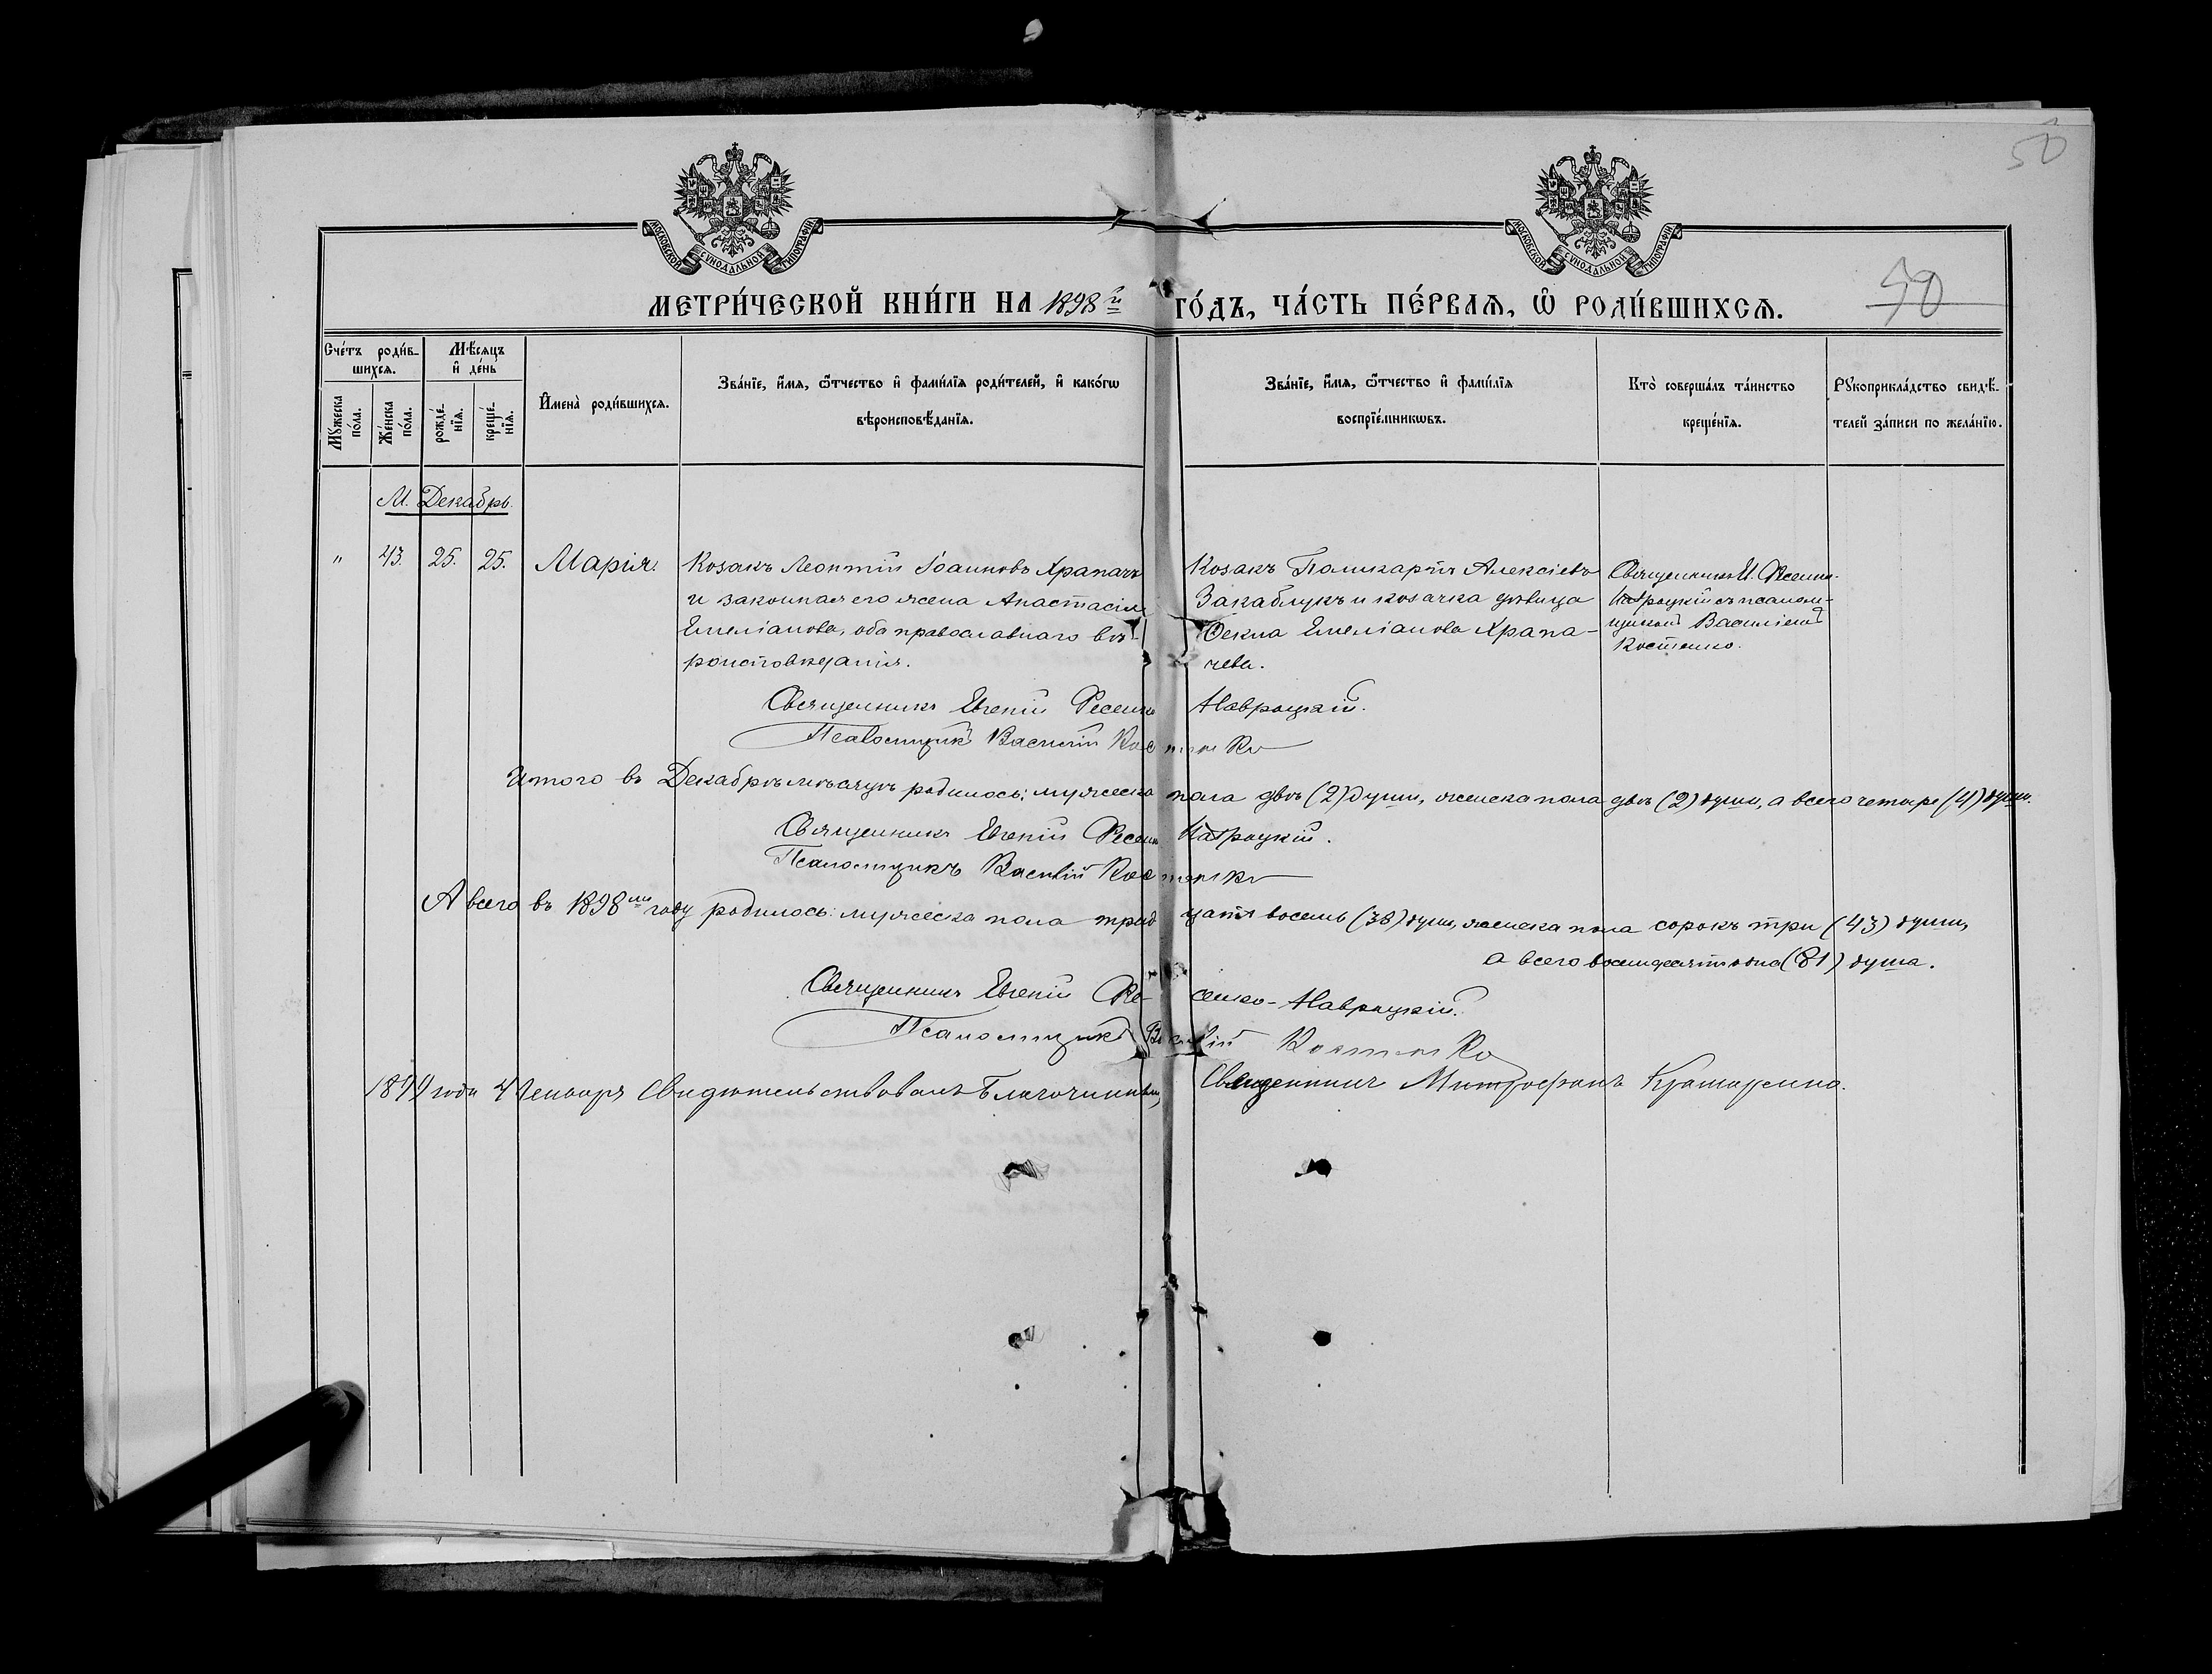 50
МОСКОВСКОЙ СУНОДАЛЬНОЙ ТИПОГРАФІИ
МОСКОВСКОЙ СУНОДАЛЬНОЙ ТИПОГРАФІИ
МЕТРИ́ЧЕСКОЙ КНИ́ГИ НА 1898й ГО́ДЪ, ЧА́СТЬ ПЕ́РВАѦ, Ѡ҆ РОДИ́ВШИХСѦ.
50
Сче́тъ роди́в-
шихсѧ.
Мꙋжеска по́ла.
Же́нска по́ла.
Мѣ́сѧцъ
и҆ де́нь
рожде́-
нїѧ.
креще́-
нїѧ.
И҆мена̀ роди́вшихсѧ.
Зва́нїе, и҆́мѧ, ѻ҆́тчество и҆ фами́лїѧ роди́телей, и҆ како́гѡ
вѣроисповѣ́данїѧ.
Зва́нїе, и҆́мѧ, ѻ҆́тчество и҆ фами́лїѧ
воспрїе́мникѡвъ.
Кто̀ соверша́лъ та́инство
креще́нїѧ.
Рꙋкоприкла́дство свидѣ́-
телей за́писи по жела́нїю.
М. Декабрь.
" 43. 25. 25. Марія.
Козакъ Леонтій Іоанновъ Храпачъ
и законная его жена Анастасія
Емеліанова, оба православнаго вѣ-
роисповѣданія.
Козакъ Поликарпъ Алексіевъ
Закаблукъ и козачка дѣвица
Ѳекла Емеліанова Храпа-
чева.
Священникъ Е. Фесенко-
Навроцкій съ псалом-
щикомъ Василіемъ
Костенко.
Священникъ Евгеній Фесенко Навроцкій.
Псаломщикъ Василій Костенко
Итого въ Декабрѣ мѣсяцѣ родилось: мужеска пола двѣ (2) души, женска пола двѣ (2) души, а всего четыре (4) души.
Священникъ Евгеній Фесенко Навроцкій.
Псаломщикъ Василій Костенко
А всего въ 1898мъ году родилось: мужеска пола тридцать восемь (38) душъ, женска пола сорокъ три (43) души,
а всего восемдесятъ одна (81) душа.
Священникъ Евгеній Фе-сенко-Навроцкій.
Псаломщикъ Василій Костенко
1899 года 4 Генваря Свидѣтельствовалъ Благочинный, Священникъ Митрофанъ